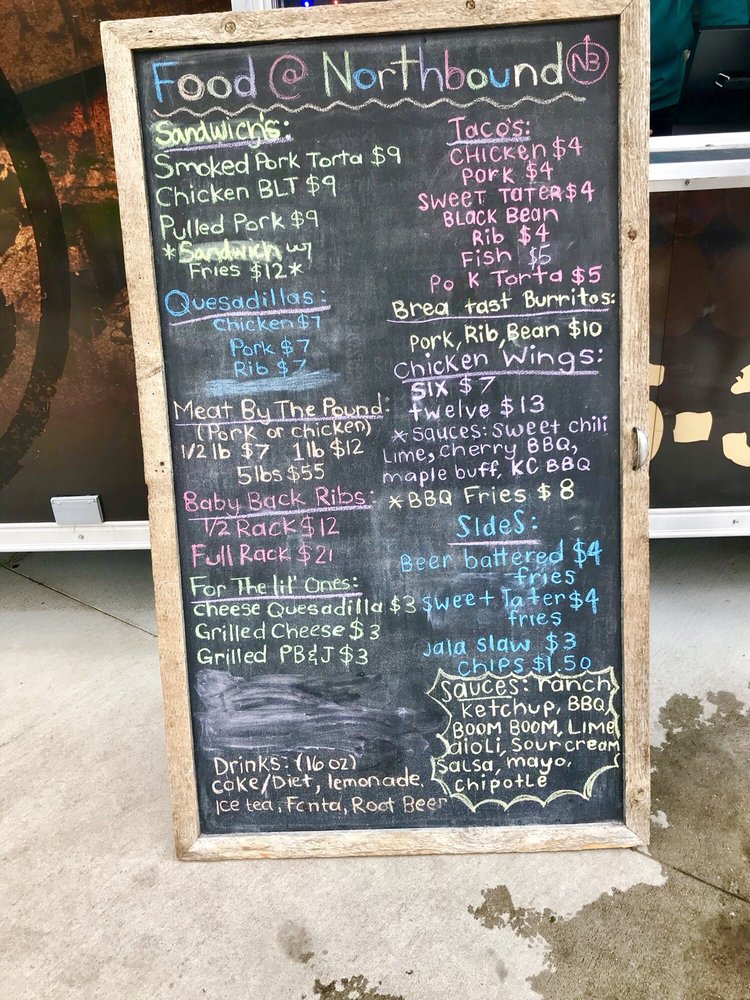 Food @ Northbound NB
Sandwich's:
Smoked Pork Torta $9
Chicken BLT $9
Pulled Pork $9
*Sandwich w/
Fries $12*
Quesadillas:
Chicken $7
Pork $7
Rib $7
Meat By The Pound:
(Pork or chicken)
1/2 lb $7 1lb $12
5lbs $55
Baby Back Ribs:
1/2 Rack $12
Full Rack $21
For The lil' Ones:
cheese Quesadilla $3
Grilled Cheese $3
Grilled PB&J $3
Drinks: (16 oz)
coke/Diet, lemonade,
Ice tea, Fanta, Root Beer
Taco's:
Chicken $4
Pork $4
Sweet Tater $4
Black Bean
Rib $4
Fish $5
Po k Torta $5
Brea fast Burritos:
Pork, Rib, Bean $10
Chicken Wings:
Six $7
twelve $13
*Sauces: Sweet chili
Lime, Cherry BBQ,
maple buff, KC BBQ
*BBQ Fries $8
Sides:
Beer battered $4
fries
Sweet Tater $4
fries
Jala slaw $3
Chips $1.50
Sauces: ranch,
Ketchup, BBQ,
BOOM BOOM, Lime
aioli, Sour cream
Salsa, mayo,
chipotle